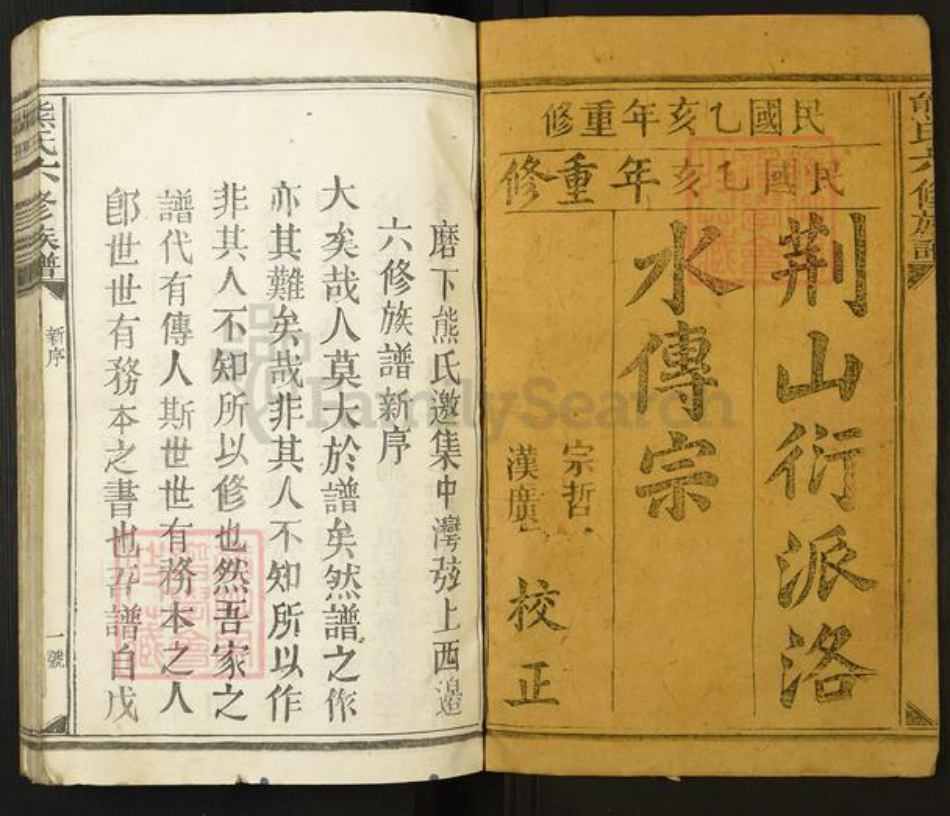 民國乙亥年重修
民國乙亥年重修
荆山衍派洛
水傳宗
宗哲
漢廣
校正
熊氏六修族譜
磨下熊氏邀集中灣弦上西邉
六修族譜新序
大矣哉人莫大於譜矣然譜之作
亦其難矣哉非其人不知所以作
非其人不知所以修也然吾家之
譜代有傳人斯世世有務本之人
卽世世有務本之書也吾譜自戊
熊氏六修族譜
新序
一號
FamilySearch